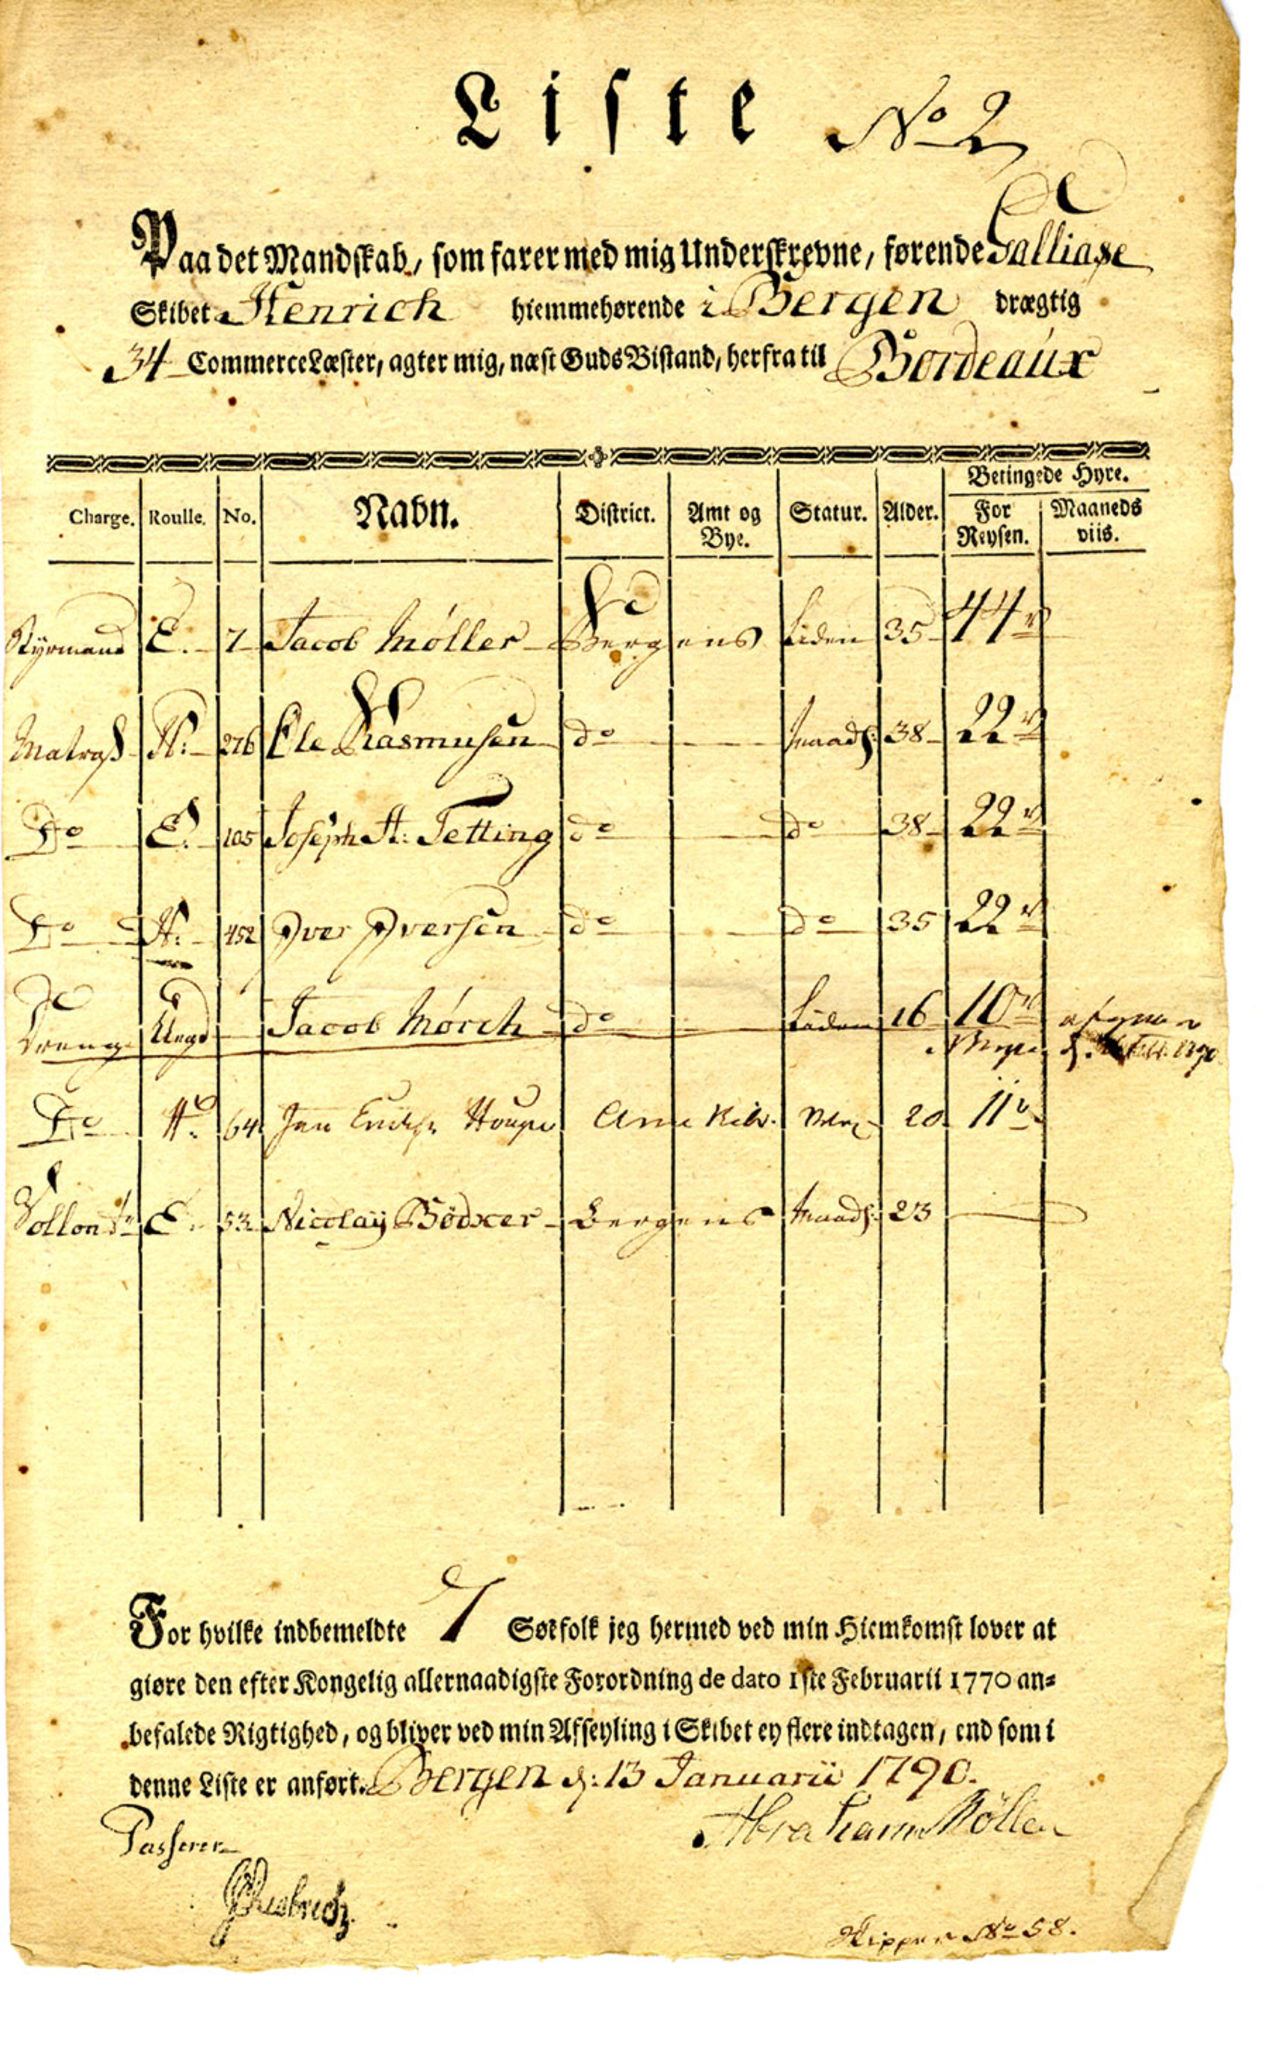 Liste No 2
Paa det Mandskab, som farer med mig Underskrevne, førende Galliase
Skibet Henrich hiemmehørende i Bergen drægtig
34 CommerceLæster, agter mig, næst Guds Bistand, herfra til Bordeaux
Betingede Hyre.
Charge. Roulle. No. Navn. District. Amt og Bye. Statur. Alder. For Reysen. Maaneds viis.
Styrmand E. 7 Jacob Møller Bergens Liden 35 44
Matros H: 276 Ole Rasmusen do 38 22
Do E. 105 Joseph A: Tetting do do 38 22
Do H: 452 Iver Iversen do do 35 22
Dreng Ungd Jacob Mørch do Liden 16 10
Do H: 64 20 11
E. 53 Nicolaÿ Bödxer Bergens 23
For hvilke indbemeldte 7 Søefolk jeg hermed ved min Hiemkomst lover at
giøre den efter Kongelig allernaadigste Forordning de dato 1ste Februarii 1770 an-
befalede Rigtighed, og bliver ved min Afseyling i Skibet ey flere indtagen, end som i
denne Liste er anført. Bergen d: 13 Januarii 1790.
Abraham Møller
Passerer
Skipper No 58.